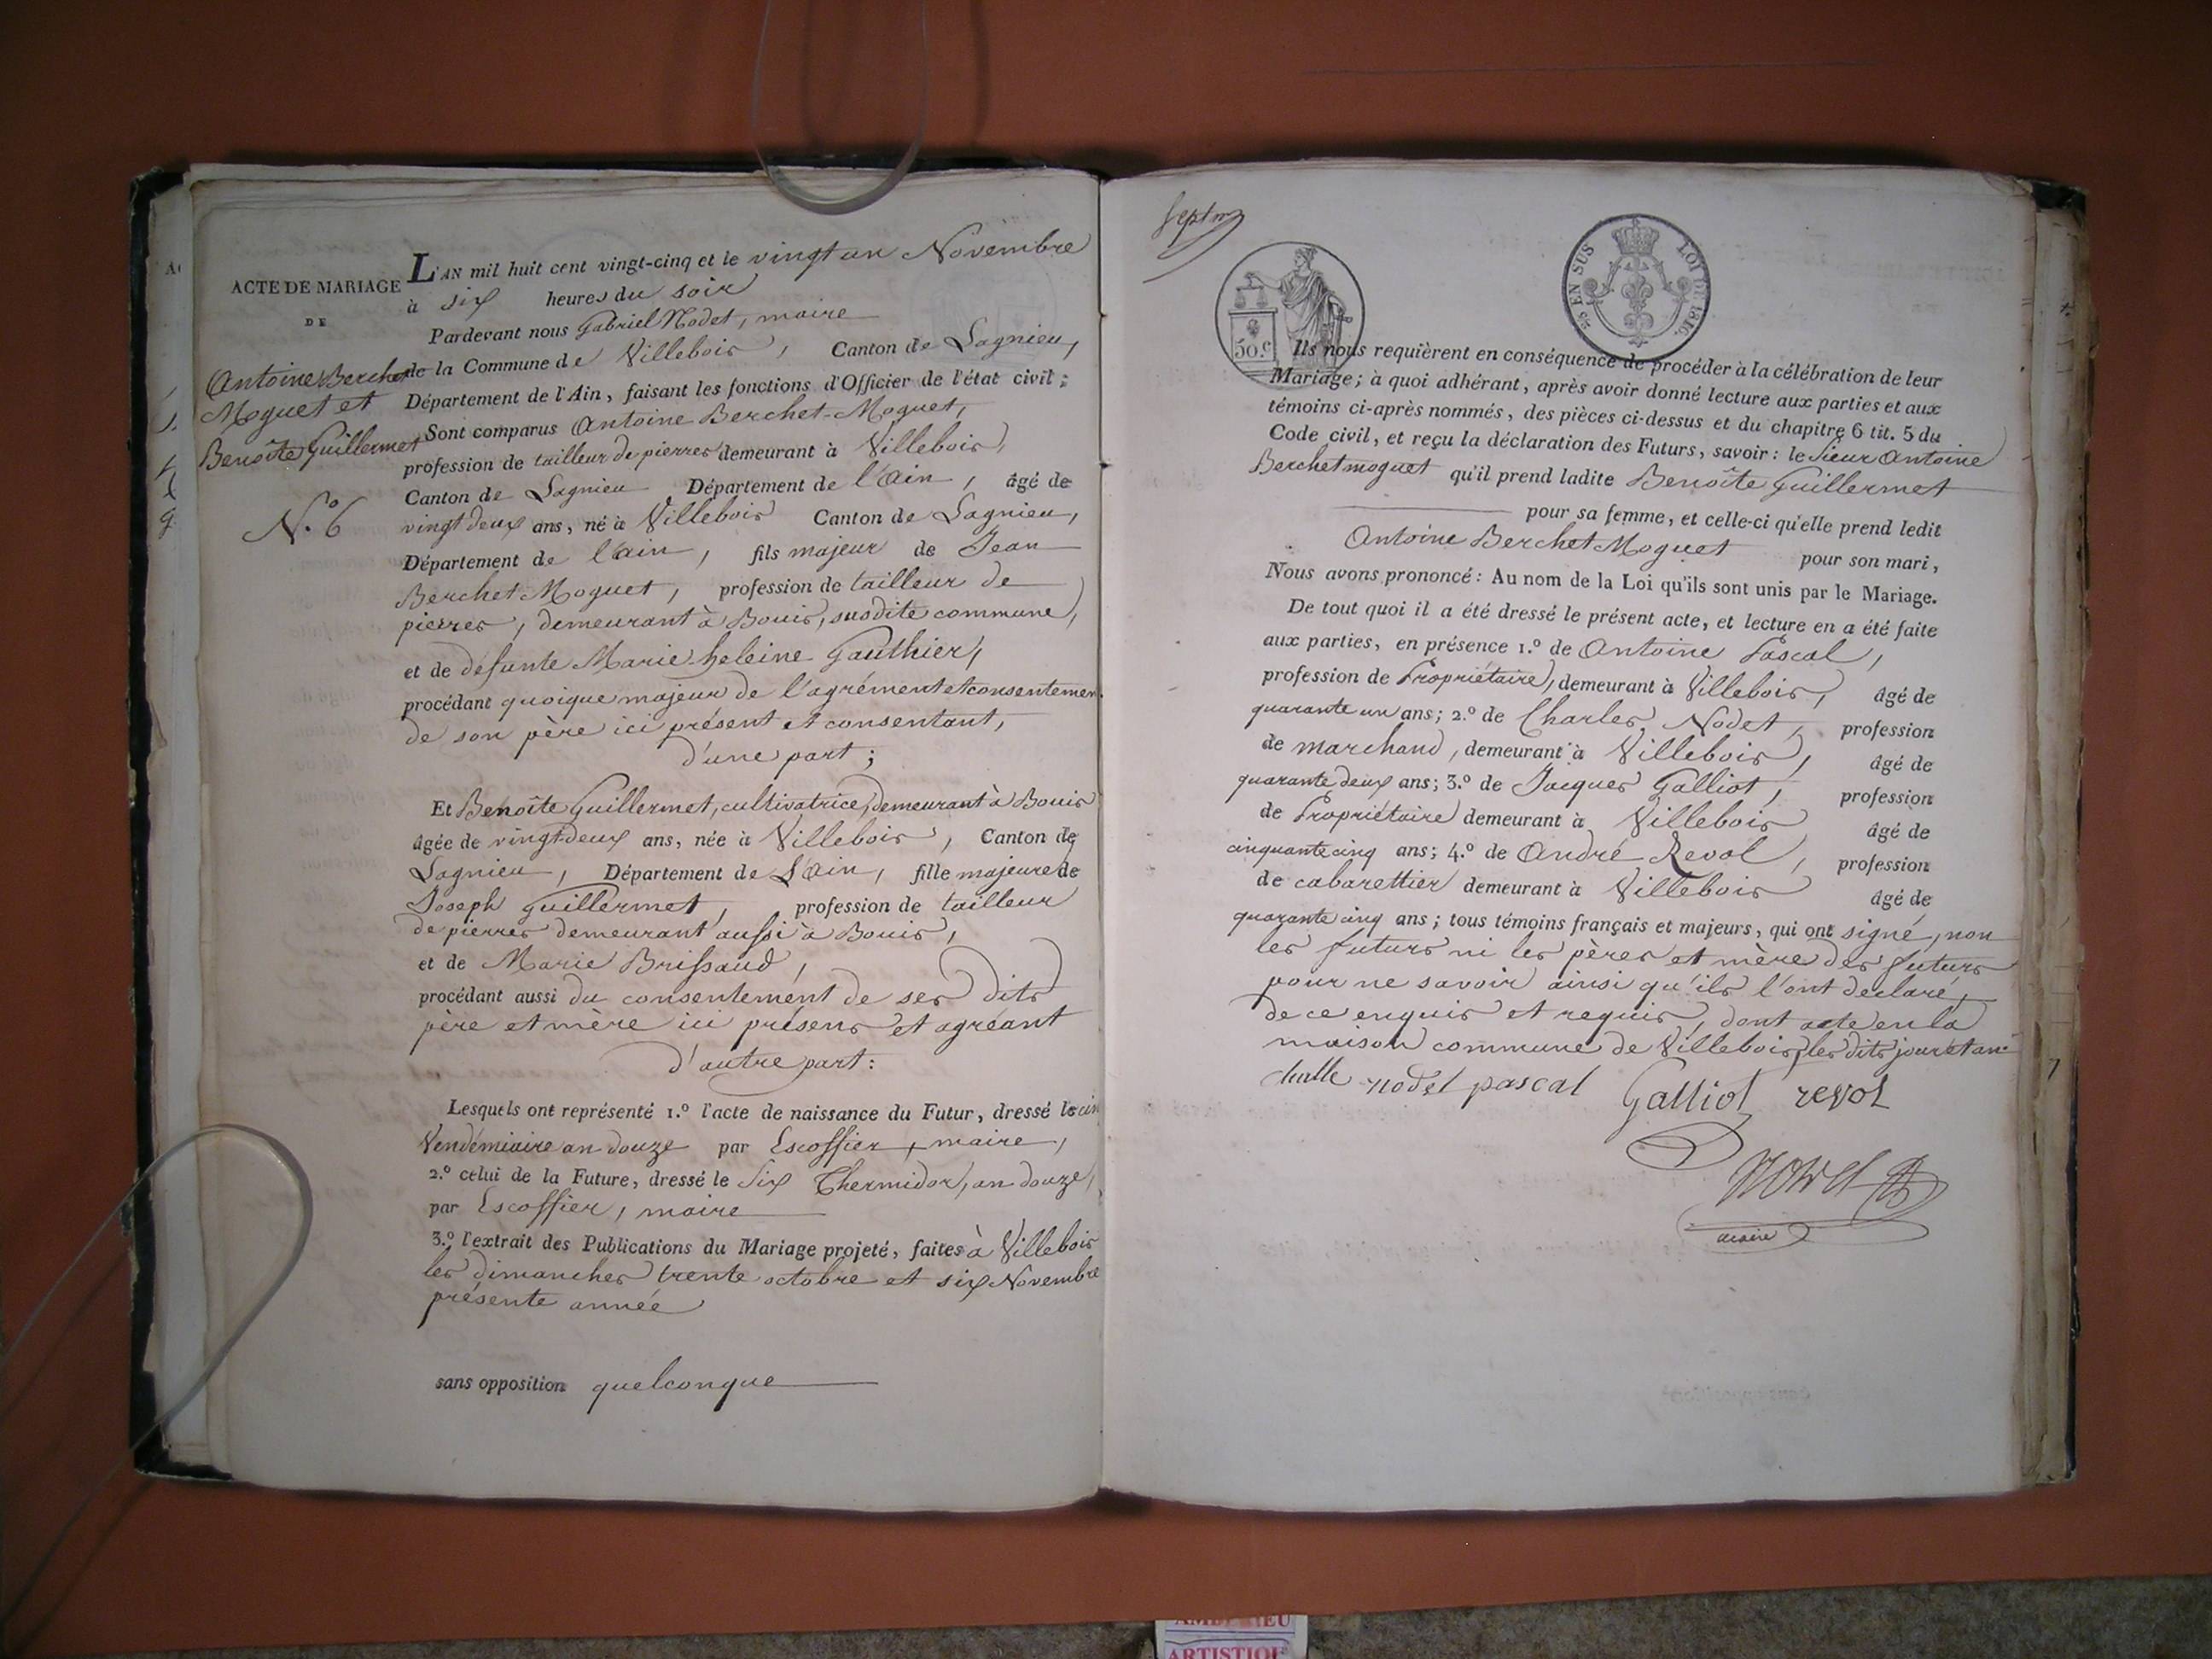 ACTE DE MARIAGE
DE
Antoine Berchet
Moguet et
Benoîte Guillermet
N.º 6
L'AN mil huit cent vingt-cinq et le vingt un Novembre
à six heures du soir
Pardevant nous Gabriel Nodet, maire
de la Commune de Villebois, Canton de Lagnieu,
Département de l'Ain, faisant les fonctions d'Officier de l'état civil;
Sont comparus Antoine Berchet-Moguet,
profession de tailleur de pierres demeurant à Villebois,
Canton de Lagnieu Département de l'Ain, âgé de
vingt deux ans, né à Villebois Canton de Lagnieu,
Département de l'ain, fils majeur de Jean
Berchet Moguet, profession de tailleur de
pierres, demeurant à Bouis, susdite commune,
et de défunte Marie heleine Gauthier,
procédant quoique majeur de l'agrément et consentemen
de son père ici présent et consentant,
d'une part;
Et Benoîte Guillermet, cultivatrice, demeurant à Bouis
âgée de vingt-deux ans, née à Villebois, Canton de
Lagnieu, Département de l'Ain, fille majeure de
Joseph Guillermet, profession de tailleur
de pierres demeurant aussi à Bouis,
et de Marie Brissaud,
procédant aussi du consentement de ses dits
père et mère ici présens et agréant
d'autre part:
Lesquels ont représenté 1.º l'acte de naissance du Futur, dressé le cin
Vendémiaire an douze par Escoffier, maire,
2.º celui de la Future, dressé le six Thermidor, an douze,
par Escoffier, maire
3.º l'extrait des Publications du Mariage projeté, faites à Villebois
les dimanches trente octobre et six Novembre
présente année
sans opposition quelconque
septm
50.c
25 EN SUS LOI DE 1816.
Ils nous requièrent en conséquence de procéder à la célébration de leur
Mariage; à quoi adhérant, après avoir donné lecture aux parties et aux
témoins ci-après nommés, des pièces ci-dessus et du chapitre 6 tit. 5 du
Code civil, et reçu la déclaration des Futurs, savoir: le Sieur Antoine
Berchet moguet qu'il prend ladite Benoîte Guillermet
pour sa femme, et celle-ci qu'elle prend ledit
Antoine Berchet Moguet pour son mari,
Nous avons prononcé: Au nom de la Loi qu'ils sont unis par le Mariage.
De tout quoi il a été dressé le présent acte, et lecture en a été faite
aux parties, en présence 1.º de Antoine Pascal,
profession de Propriétaire, demeurant à Villebois, âgé de
quarante un ans; 2.º de Charles Nodet, profession
de marchand, demeurant à Villebois, âgé de
quarante deux ans; 3.º de Jacques Galliot, profession
de Propriétaire demeurant à Villebois âgé de
cinquante cinq ans; 4.º de André Revol, profession
de cabarettier demeurant à Villebois âgé de
quarante cinq ans; tous témoins français et majeurs, qui ont signé, non
les futurs ni les pères et mère des futurs
pour ne savoir ainsi qu'ils l'ont declaré,
de ce enquis et requis, dont acte en la
maison commune de Villebois, les dits jour et an
challe nodet pascal Galliot revol
Nodet
maire
7
ARTISTIQUE